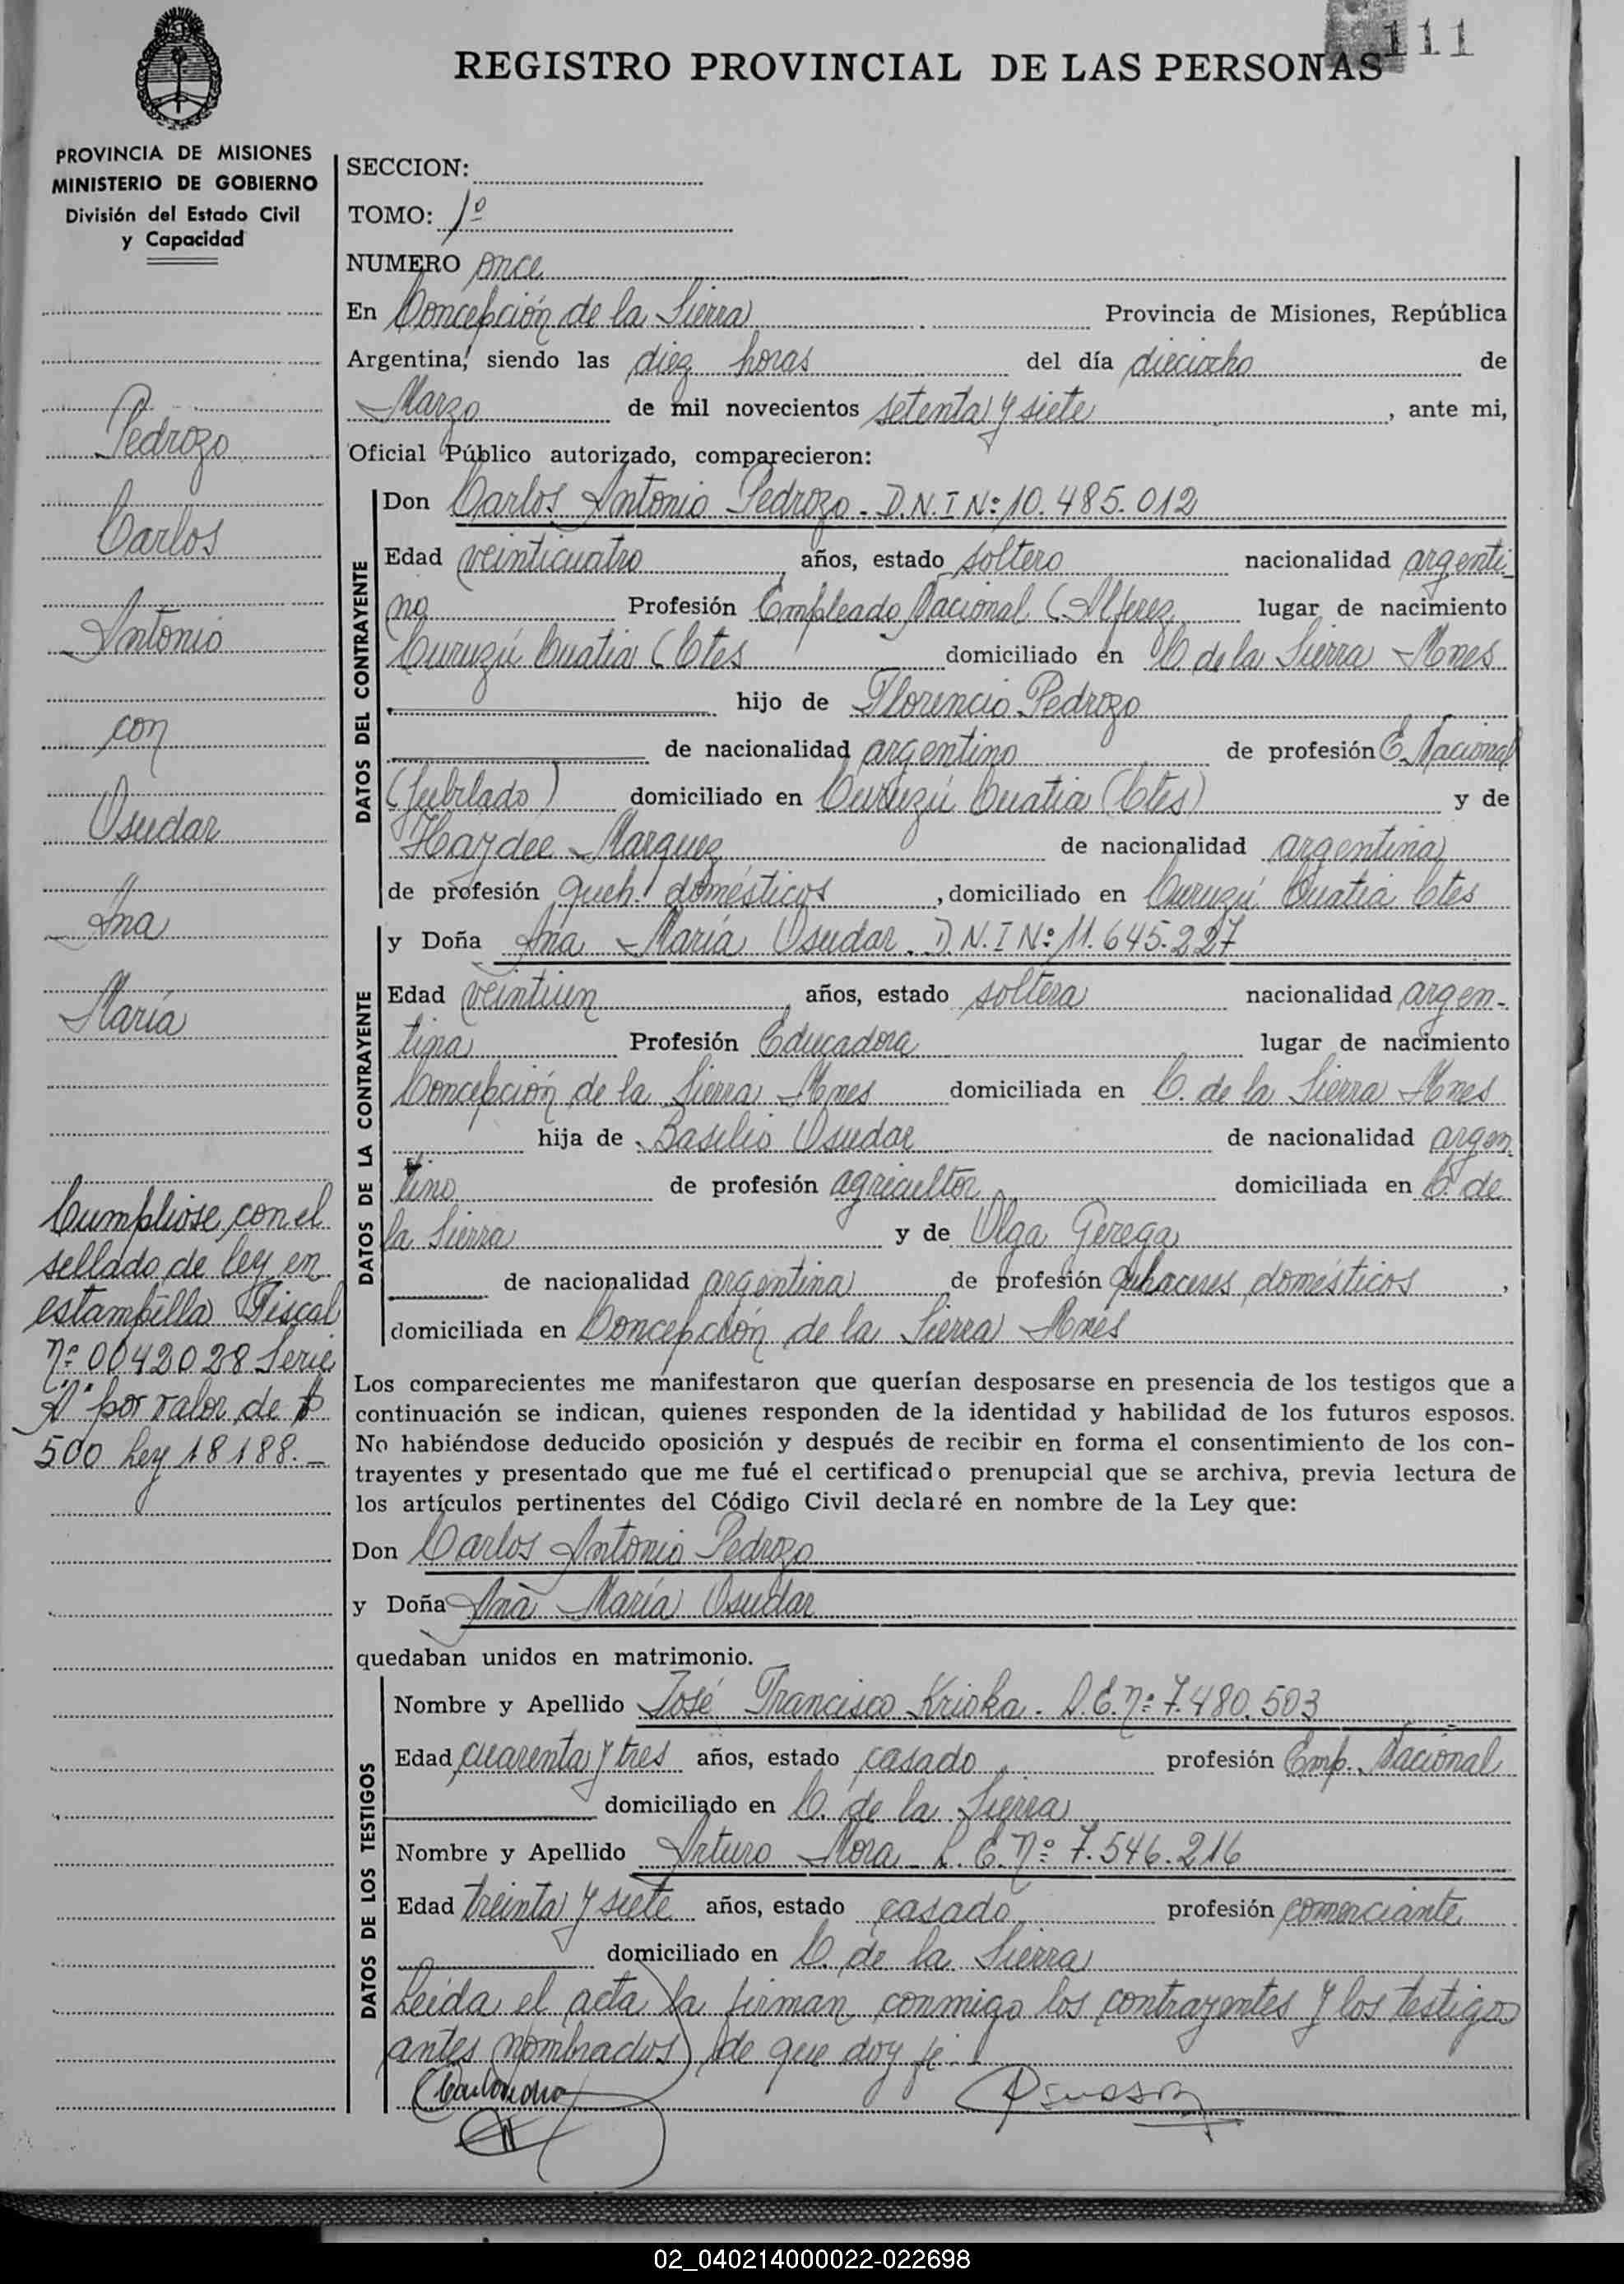 111
REGISTRO PROVINCIAL DE LAS PERSONAS
PROVINCIA DE MISIONES
MINISTERIO DE GOBIERNO
División del Estado Civil
y Capacidad
Pedrozo
Carlos
Antonio
con
Osudar
Ana
María
Cumpliose con el
sellado de ley en
estampilla Fiscal
Nº 0042028 Serie
"A" por valor de $
500 Ley 18188.—
SECCION:
TOMO: 1º
NUMERO once
En Concepción de la Sierra Provincia de Misiones, República
Argentina, siendo las diez horas del día dieciocho de
Marzo de mil novecientos setenta y siete, ante mi,
Oficial Público autorizado, comparecieron:
DATOS DEL CONTRAYENTE
Don Carlos Antonio Pedrozo - D.N.I Nº 10.485.012
Edad veinticuatro años, estado soltero nacionalidad argenti
no Profesión Empleado Nacional (Alferez lugar de nacimiento
Curuzú Cuatia (Ctes domiciliado en C. de la Sierra Mnes
hijo de Florencio Pedrozo
de nacionalidad argentino de profesión E. Nacional
(Jubilado) domiciliado en Curuzú Cuatia (Ctes) y de
Haydee Marquez de nacionalidad argentina
de profesión queh. domésticos, domiciliado en Curuzú Cuatia Ctes
DATOS DE LA CONTRAYENTE
y Doña Ana María Osudar. D.N.I Nº 11.645.227
Edad veintiun años, estado soltera nacionalidad argen-
tina Profesión Educadora lugar de nacimiento
Concepción de la Sierra Mnes domiciliada en C. de la Sierra Mnes
hija de Basilio Osudar de nacionalidad argen
tino de profesión agricultor domiciliada en C. de
la Sierra y de Olga Gerega
de nacionalidad argentina de profesión quhaceres domésticos,
domiciliada en Concepción de la Sierra Mnes
Los comparecientes me manifestaron que querían desposarse en presencia de los testigos que a
continuación se indican, quienes responden de la identidad y habilidad de los futuros esposos.
No habiéndose deducido oposición y después de recibir en forma el consentimiento de los con-
trayentes y presentado que me fué el certificado prenupcial que se archiva, previa lectura de
los artículos pertinentes del Código Civil declaré en nombre de la Ley que:
Don Carlos Antonio Pedrozo
y Doña Ana María Osudar
quedaban unidos en matrimonio.
DATOS DE LOS TESTIGOS
Nombre y Apellido José Francisco Krioka. D.E. Nº 7.480.503
Edad cuarenta y tres años, estado casado profesión Emp. Nacional
domiciliado en C. de la Sierra
Nombre y Apellido Arturo Mora L.E. Nº 7.546.216
Edad treinta y siete años, estado casado profesión comerciante
domiciliado en C. de la Sierra
Leida el acta la firman conmigo los contrayentes y los testigos
antes nombrados de que doy fé.
02_040214000022-022698